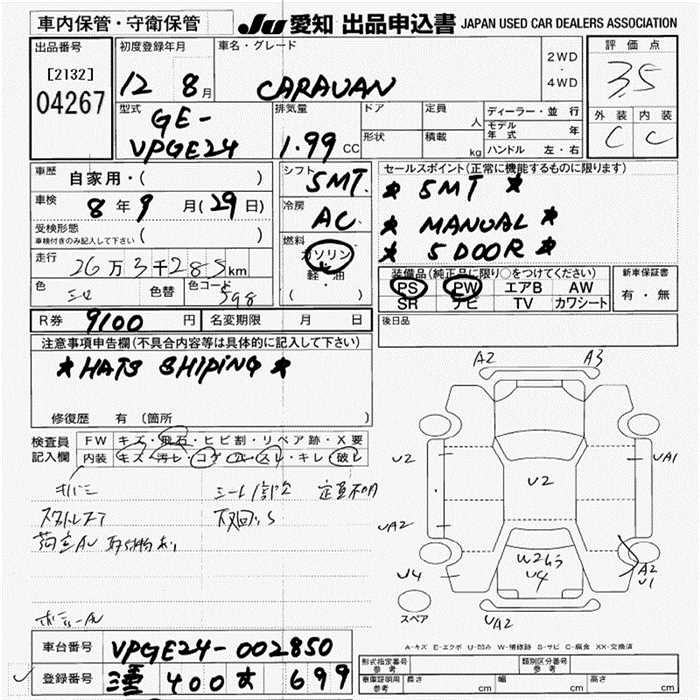 車内保管・守衛保管
JU 愛知 出品申込書 JAPAN USED CAR DEALERS ASSOCIATION
出品番号
[2132]
04267
初度登録年月
12 8月
車名・グレード
CARAVAN
2WD
・
4WD
評価点
3.5
外装 内装
C C
型式
GE-
VPGE24
排気量
1.99 CC
ドア
形状
定員 人
積載 kg
ディーラー・並行
モデル年式 年
ハンドル 左・右
車歴 自家用・( )
車検 8年9月(29日)
受検形態
車検付きのみ記入して下さい ( )
走行 26万3千285km
色 色替 色コード
598
シフト
5MT.
冷房
AC
燃料
ガソリン
軽・油
( )
セールスポイント(正常に機能するものに限ります)
★ 5MT ★
★ MANUAL ★
★ 5DOOR ★
装備品(純正品に限り○をつけてください)
PS PW エアB AW
SR ナビ TV カワシート
新車保証書
有・無
R券 9100円
名変期限 月 日
後日品
注意事項申告欄(不具合内容等は具体的に記入して下さい)
★HATS SHIPING★
修復歴 有 (箇所
検査員
記入欄
FW キズ・飛石・ヒビ割・リペア跡・X要
内装 キズ・汚レ・コゲ・穴・スレ・キレ・破レ
定員不明
A2 A3
U2 UA1
U2
UA2
U4
U4
A2
U1
UA2
スペア
A-キズ E-エクボ U-凹み W-補修跡 S-サビ C-腐食 XX-交換済
車台番号 VPGE24-002850
登録番号 400 699
形式指定番号
参考
類別区分番号
参考
車庫証明用
参考
長さ cm 幅 cm 高さ cm